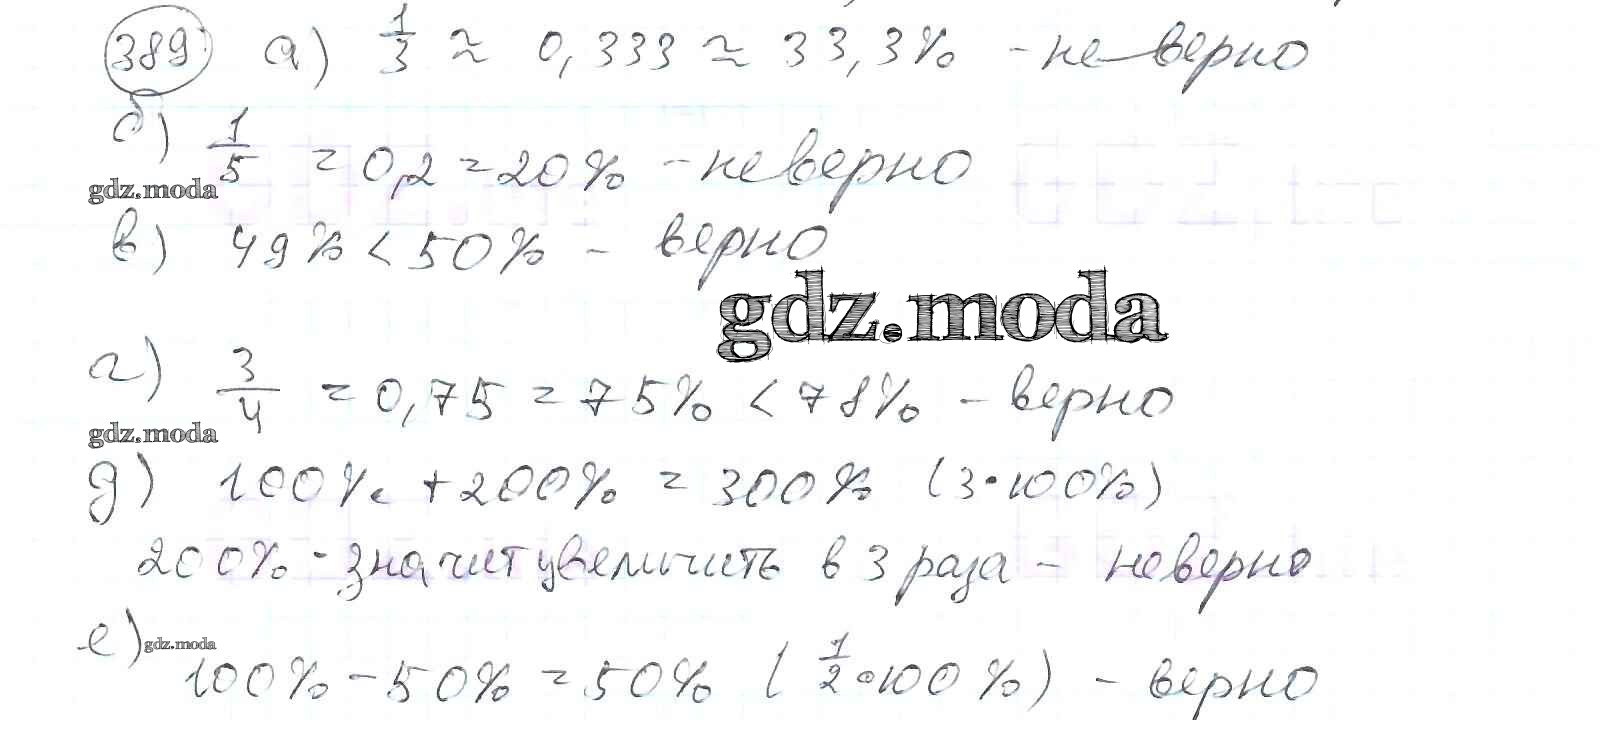 389 а) 1/3 ≈ 0,333 ≈ 33,3% - неверно
б) 1/5 = 0,2 = 20% - неверно
gdz.moda
в) 49% < 50% - верно
gdz.moda
г) 3/4 = 0,75 = 75% < 78% - верно
gdz.moda
д) 100% + 200% = 300% (3·100%)
200% - значит увеличить в 3 раза - неверно
е) gdz.moda
100% - 50% = 50% (1/2·100%) - верно